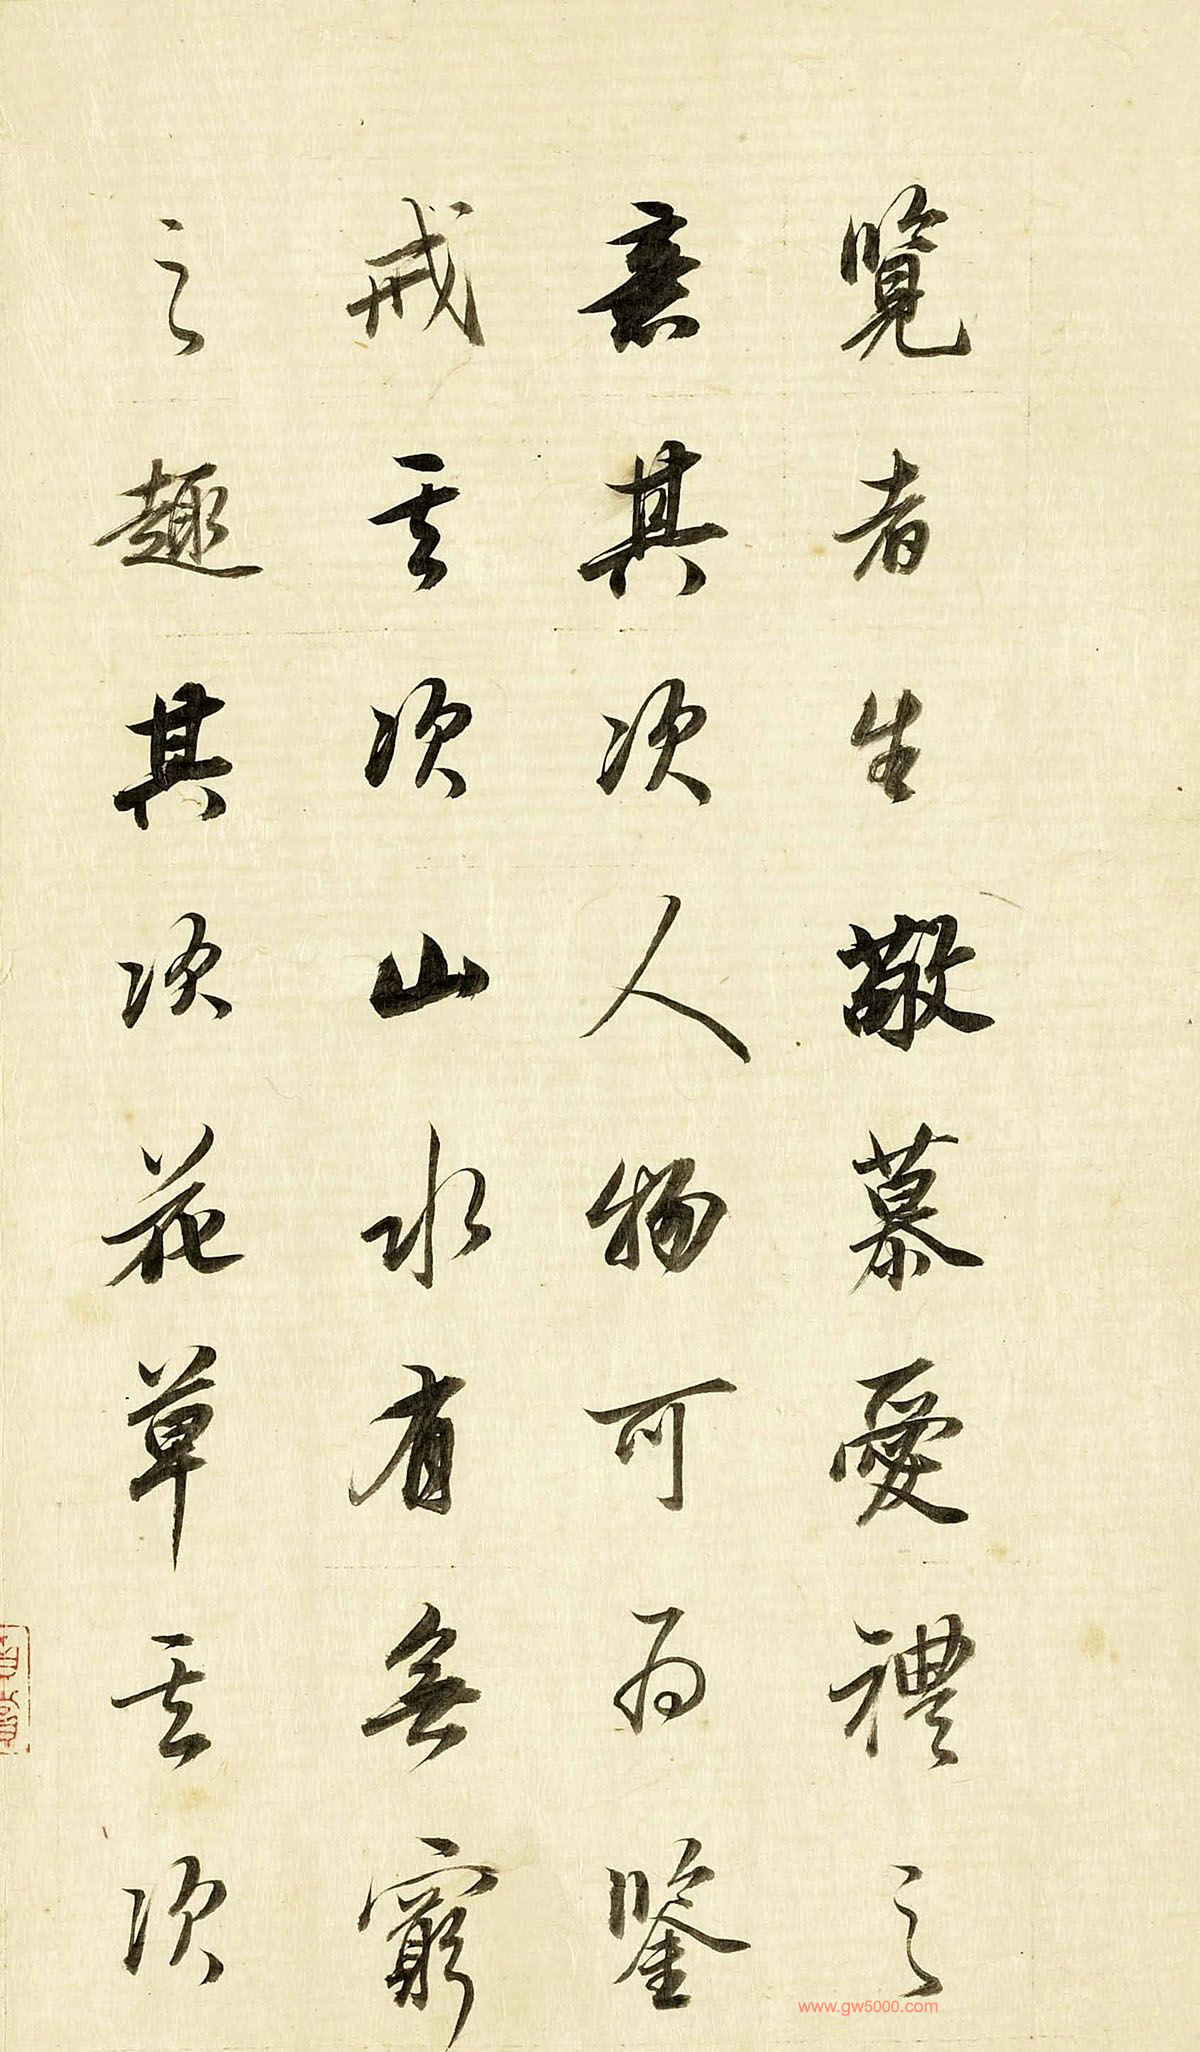 覽者生敬慕愛禮之
意其次人物可為鑒
戒其次山水有無窮
之趣其次花草其次
www.gw5000.com